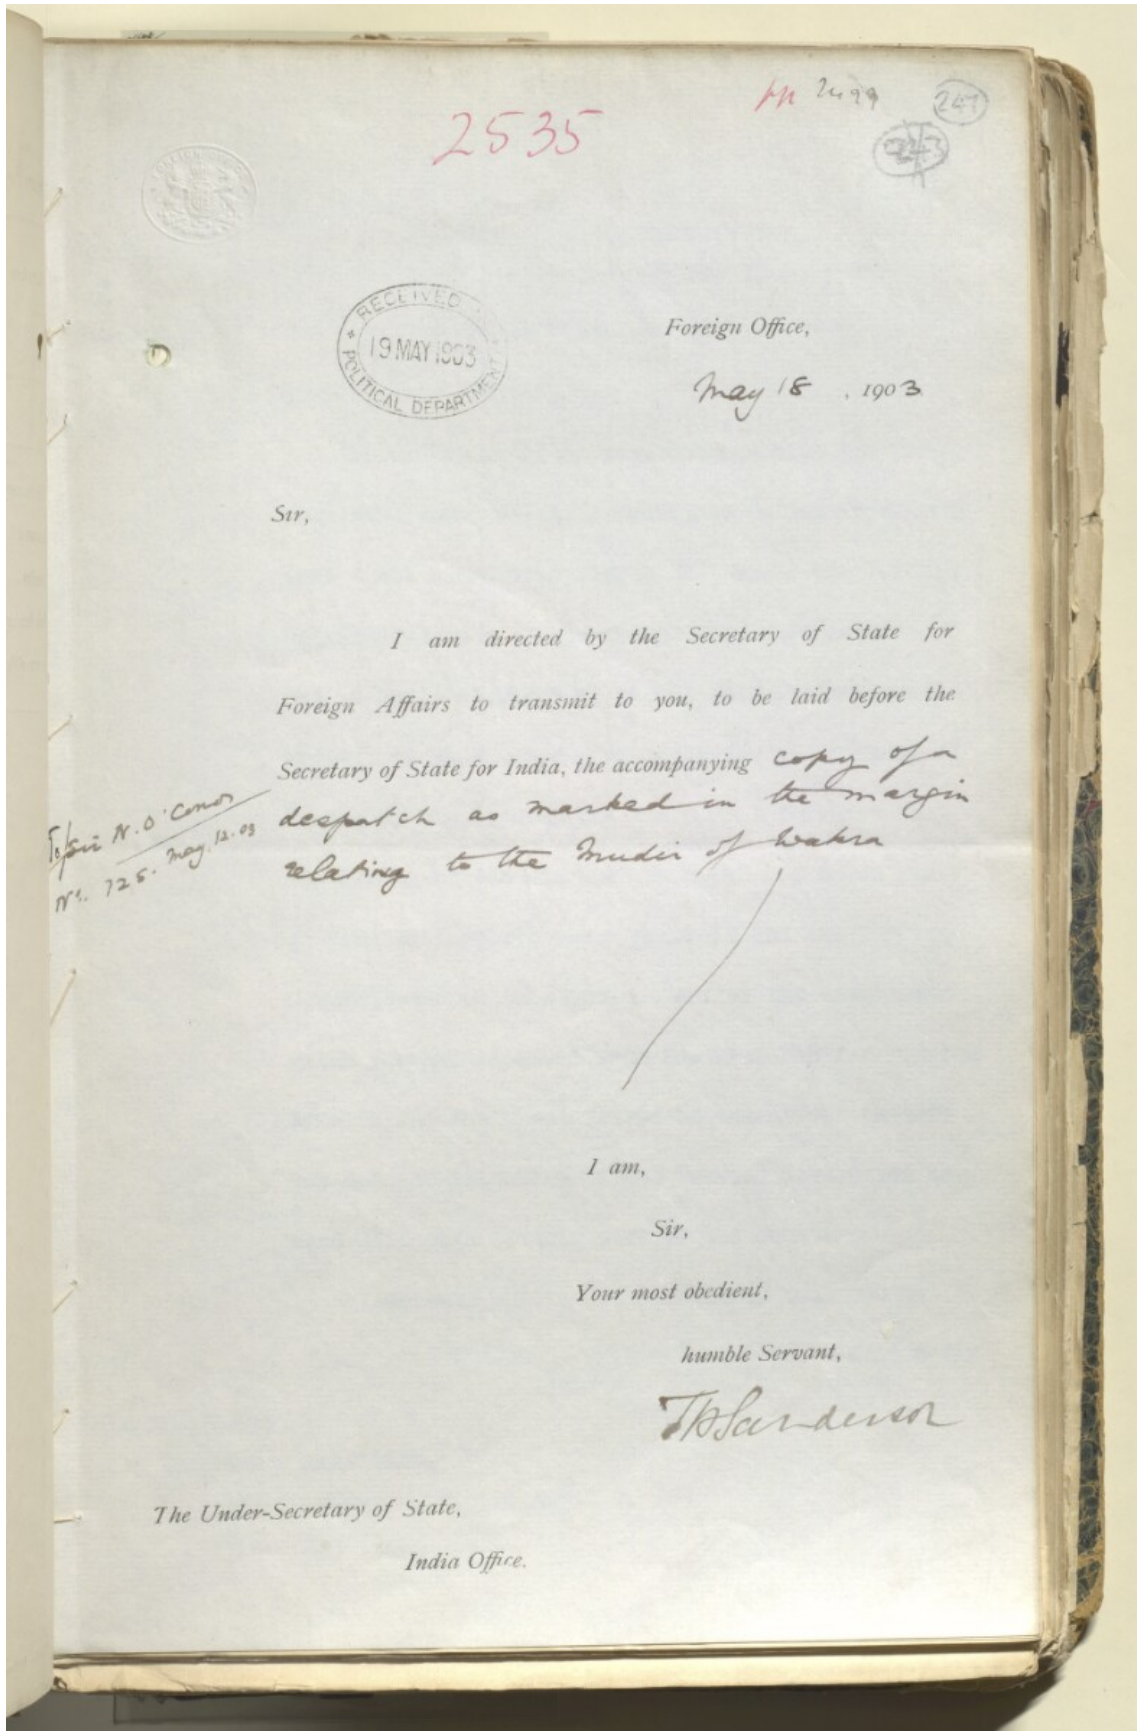 2535
247
RECEIVED
19 MAY 1903
POLITICAL DEPARTMENT
Foreign Office,
May 18 , 1903
Sir,
I am directed by the Secretary of State for
Foreign Affairs to transmit to you, to be laid before the
Secretary of State for India, the accompanying copy of a
despatch as marked in the margin
relating to the Mudir of Wakra
To/Sir N. O'Conor
No. 125. May. 12. 03
I am,
Sir,
Your most obedient,
humble Servant,
TH Sanderson
The Under-Secretary of State,
India Office.